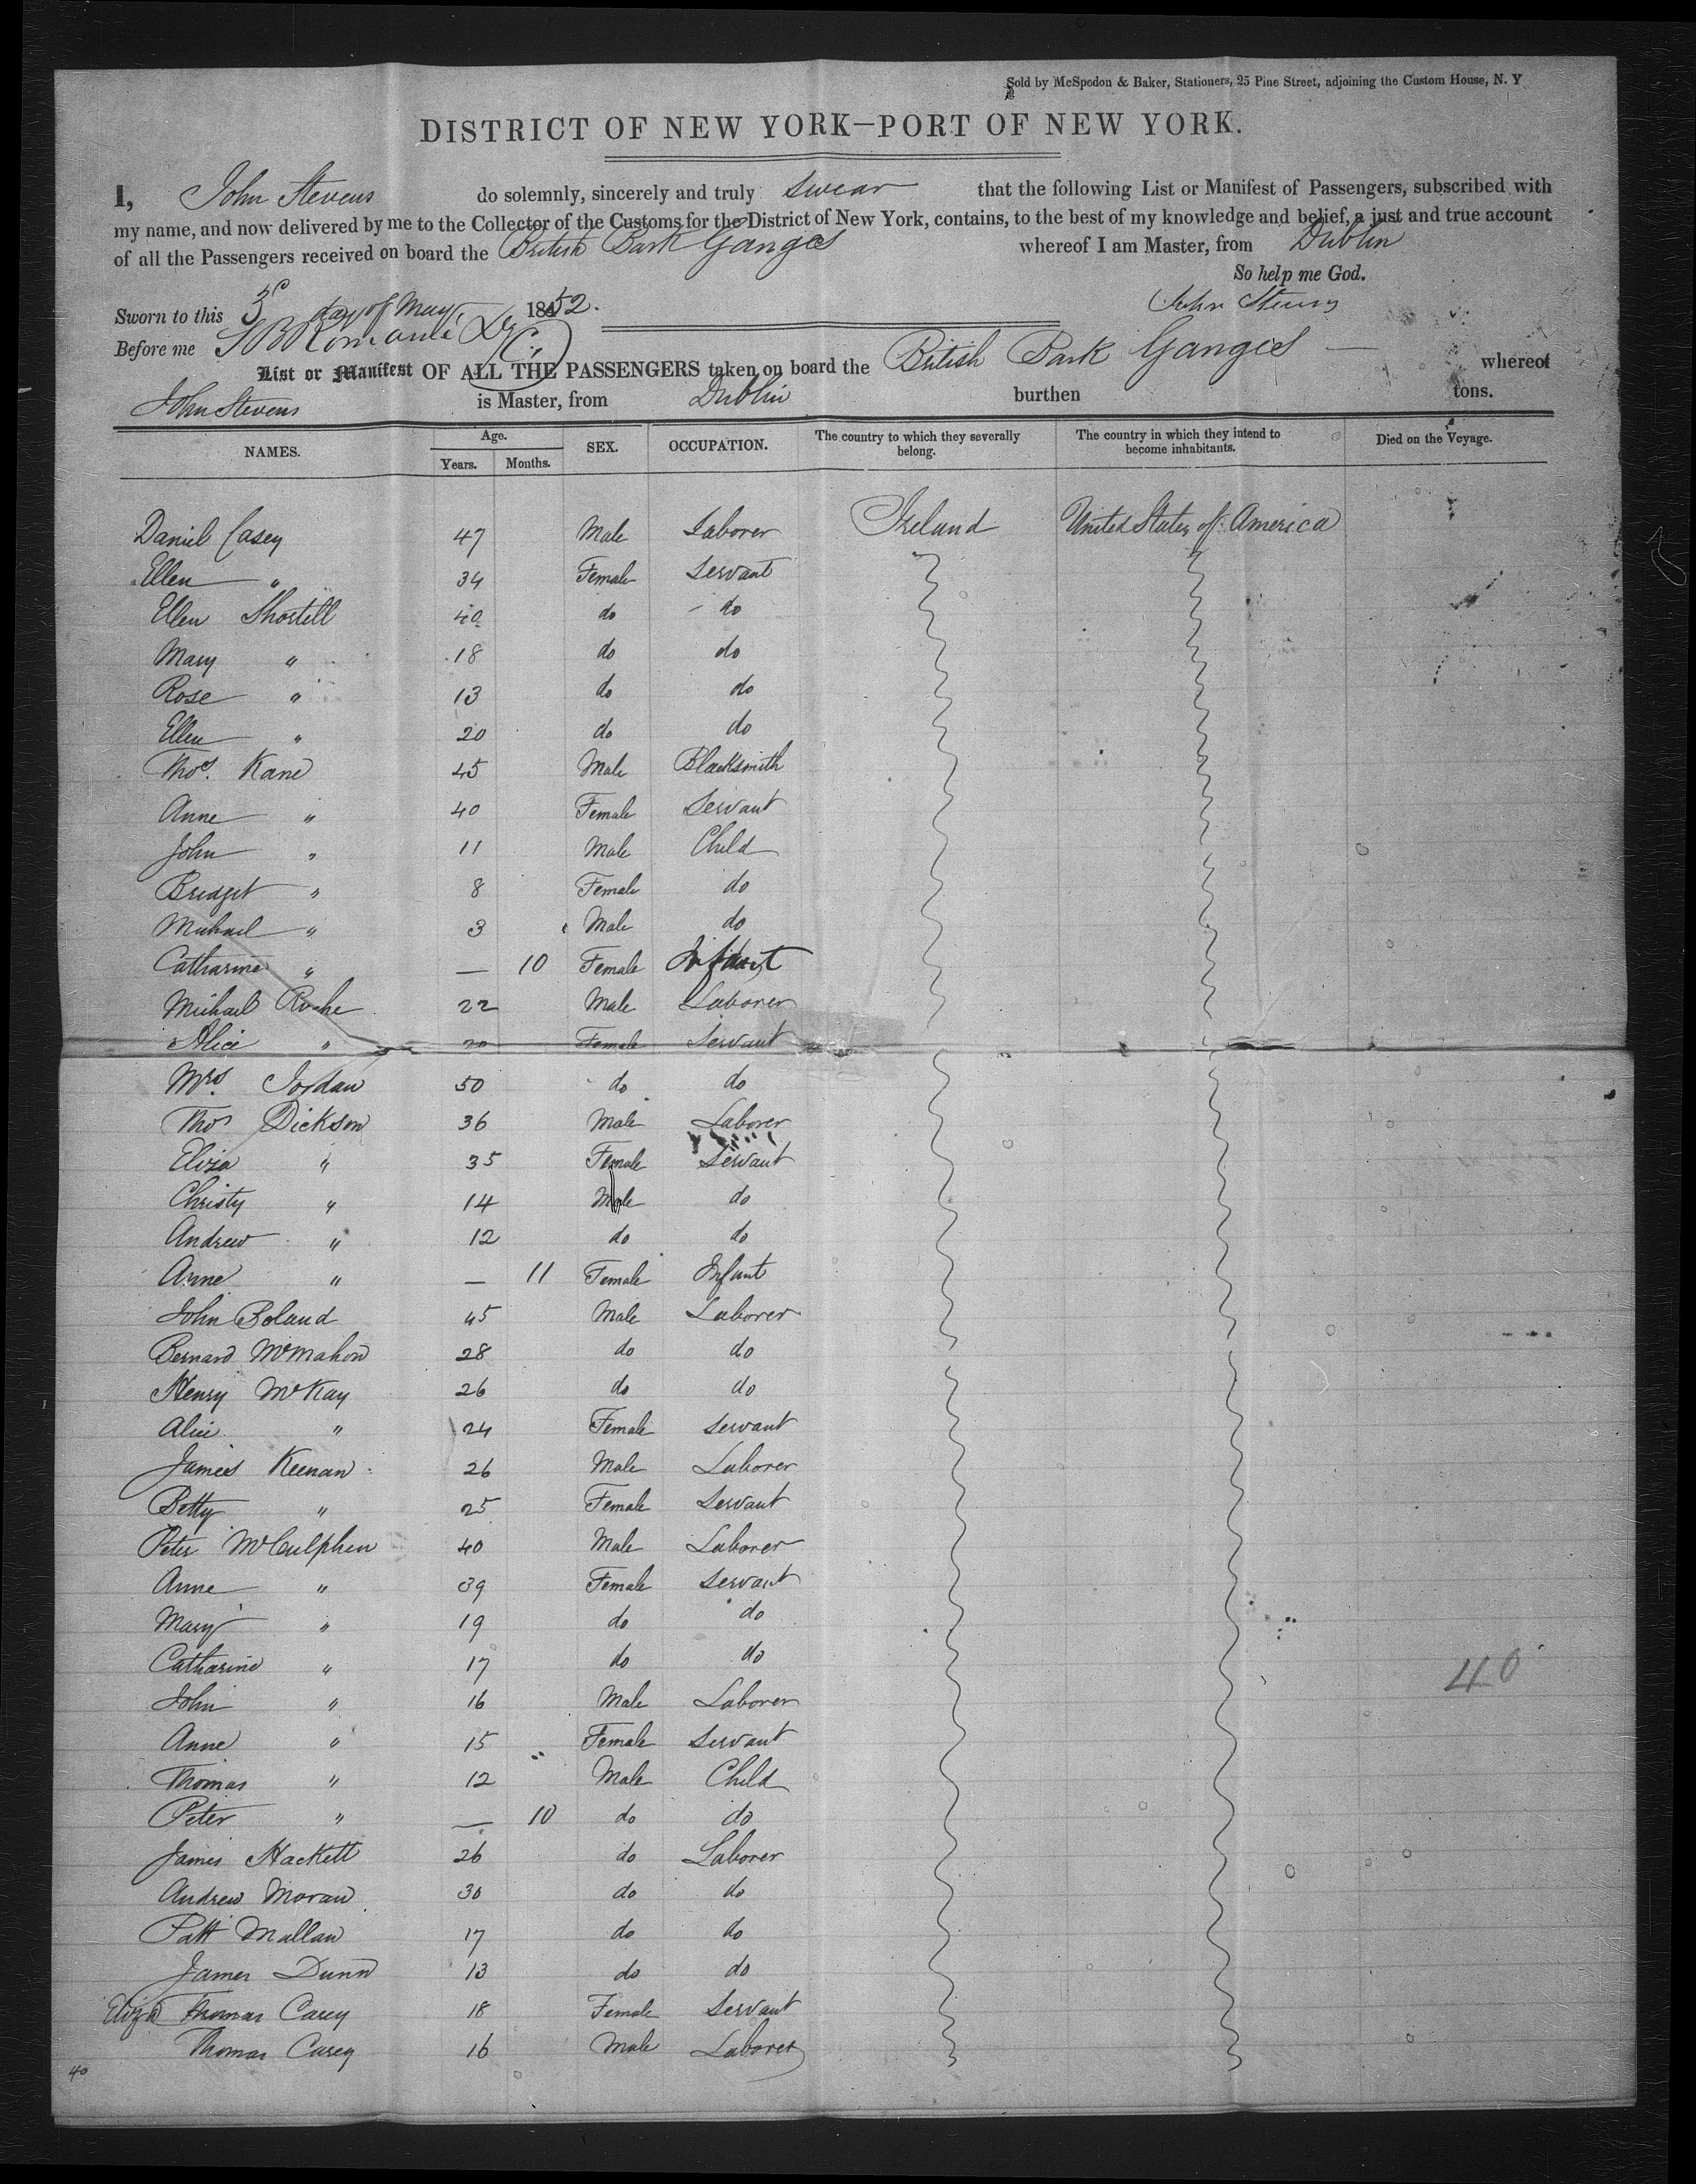 Sold by McSpedon & Baker, Stationers, 25 Pine Street, adjoining the Custom House, N. Y
DISTRICT OF NEW YORK—PORT OF NEW YORK.
I, John Stevens do solemnly, sincerely and truly swear that the following List or Manifest of Passengers, subscribed with
my name, and now delivered by me to the Collector of the Customs for the District of New York, contains, to the best of my knowledge and belief, a just and true account
of all the Passengers received on board the British Bark Ganges whereof I am Master, from Dublin
So help me God.
Sworn to this 3d day of May, 1852. John Stevens
Before me S B Romaine
List or Manifest OF ALL THE PASSENGERS taken on board the British Bark Ganges — whereof
John Stevens is Master, from Dublin burthen tons.
NAMES. Age. Years. Months. SEX. OCCUPATION. The country to which they severally belong. The country in which they intend to become inhabitants. Died on the Voyage.
Daniel Casey 47 Male Laborer Ireland United States of America
Ellen " 34 Female Servant
Ellen Shortell 40 do do
Mary " 18 do do
Rose " 13 do do
Ellen " 20 do do
Thos. Kane 45 Male Blacksmith
Anne " 40 Female Servant
John " 11 Male Child
Bridget " 8 Female do
Michael " 3 Male do
Catharine " — 10 Female Infant
Michael Roche 22 Male Laborer
Alice " 20 Female Servant
Mrs. Jordan 50 do do
Thos Dickson 36 Male Laborer
Eliza " 35 Female Servant
Christy " 14 Male do
Andrew " 12 do do
Anne " — 11 Female Infant
John Boland 45 Male Laborer
Bernard McMahon 28 do do
Henry McKay 26 do do
Alice " 24 Female Servant
James Keenan 26 Male Laborer
Betty " 25 Female Servant
Peter McCulphen 40 Male Laborer
Anne " 39 Female Servant
Mary " 19 do do
Catharine " 17 do do
John " 16 Male Laborer
Anne " 15 Female Servant
Thomas " 12 Male Child
Peter " — 10 do do
James Hackett 26 do Laborer
Andrew Moran 30 do do
Patt Mallan 17 do do
James Dunn 13 do do
Eliza Thomas Casey 18 Female Servant
Thomas Casey 16 Male Laborer
40
40